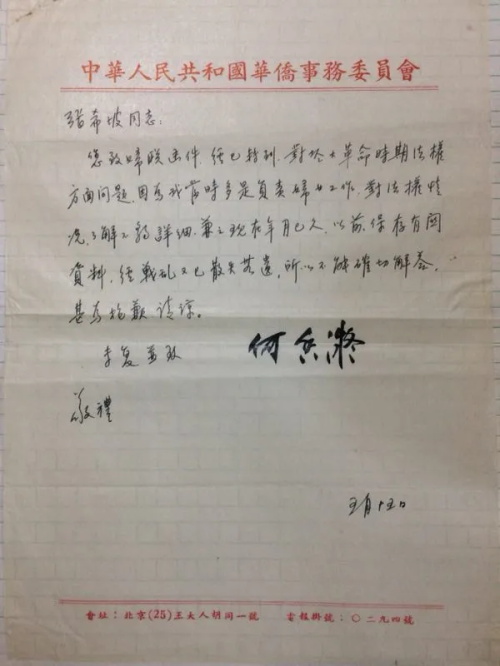 中華人民共和國華僑事務委員會
張希坡同志：
您致婦聯函件，經已轉到，對於大革命時期法權
方面问题，因为我當時多是負責婦女工作，對法權情
况了解不夠詳細，兼之现在年月已久，以前保存有関
資料，經戦乱又已散失落遺，所以不能確切解答，
甚为抱歉請諒。
专复並致
何香凝
敬禮
五月十五日
會址：北京(25)王大人胡同一號 電報掛號：〇二九四號